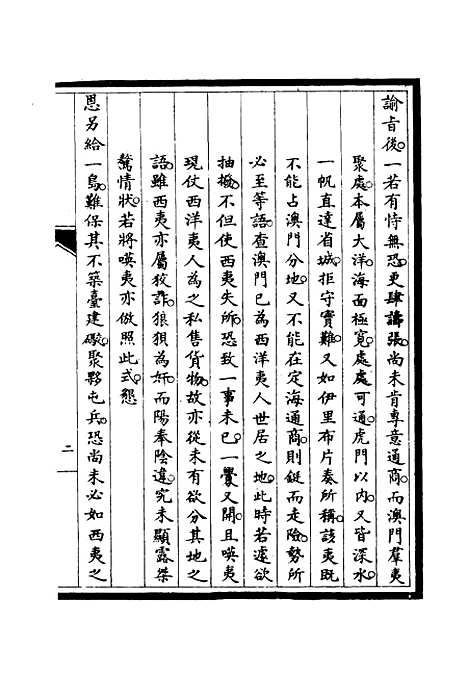 諭旨後一若有恃無恐更肆譸張尚未肯專意通商而澳門羣夷
聚處本屬大洋海面極寬處處可通虎門以內又皆深水
一帆直達省城拒守實難又如伊里布片奏所稱該夷既
不能占澳門分地又不能在定海通商則鋌而走險勢所
必至等語查澳門已為西洋夷人世居之地此時若遽欲
抽撥不但使西夷失所恐致一事未已一釁又開且𠸄夷
現仗西洋夷人為之私售貨物故亦從未有欲分其地之
語雖西夷亦屬狡詐狼狽為奸而陽奉陰違究未顯露桀
驁情狀若將𠸄夷亦倣照此式懇
恩另給一島難保其不築臺建礮聚夥屯兵恐尚未必如西夷之
二